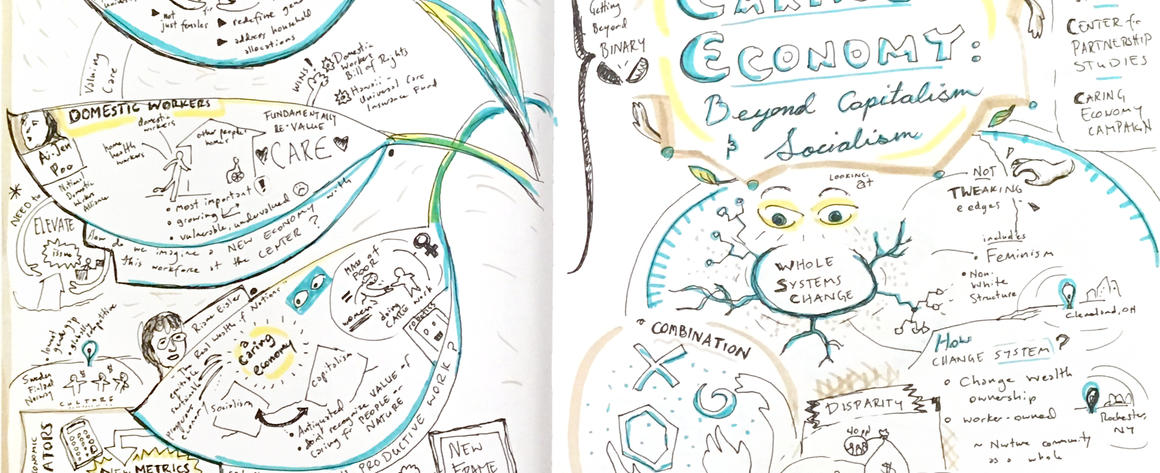 not
just females
redefine
address household
allocations
Valuing
Care
WINS!
Domestic
Workers
Bill of Rights
Hawaii
Universal Care
Insurance Fund
DOMESTIC WORKERS
Ai-Jen
Poo
National
Domestic
Worker
Alliance
domestic
workers
home
health
workers
other people's
homes
FUNDAMENTALLY
RE-VALUE
CARE
• most important
• growing
• vulnerable, undervalued
How do we imagine a NEW ECONOMY with
this workforce at the CENTER?
NEED to
ELEVATE
issue
Riane Eisler
Real Wealth of Nations
a
caring
economy
equitable
sustainable
capitalism
Socialism
• Antiquated
• don't recognize VALUE of
caring for PEOPLE
NATURE
MASS OF
POOR
=
women
doing
CARING
work
robotics
PRODUCTIVE WORK?
• lowest
gender gap
• globally competitive
Sweden
Finland
Norway
CULTURE
NEW METRICS
NEW
FRAME
Getting
Beyond
BINARY
CARING
ECONOMY:
Beyond Capitalism
& Socialism
CENTER for
PARTNERSHIP
STUDIES
CARING
ECONOMY
CAMPAIGN
LOOKING
at
WHOLE
SYSTEMS
CHANGE
NOT
TWEAKING
@ edges
includes
• Feminism
• Non-
White
Structure
Cleveland, OH
COMBINATION
How
CHANGE SYSTEM?
• Change wealth
ownership
• worker-owned
~ Nurture community
as a whole
Rochester,
NY
DISPARITY
400